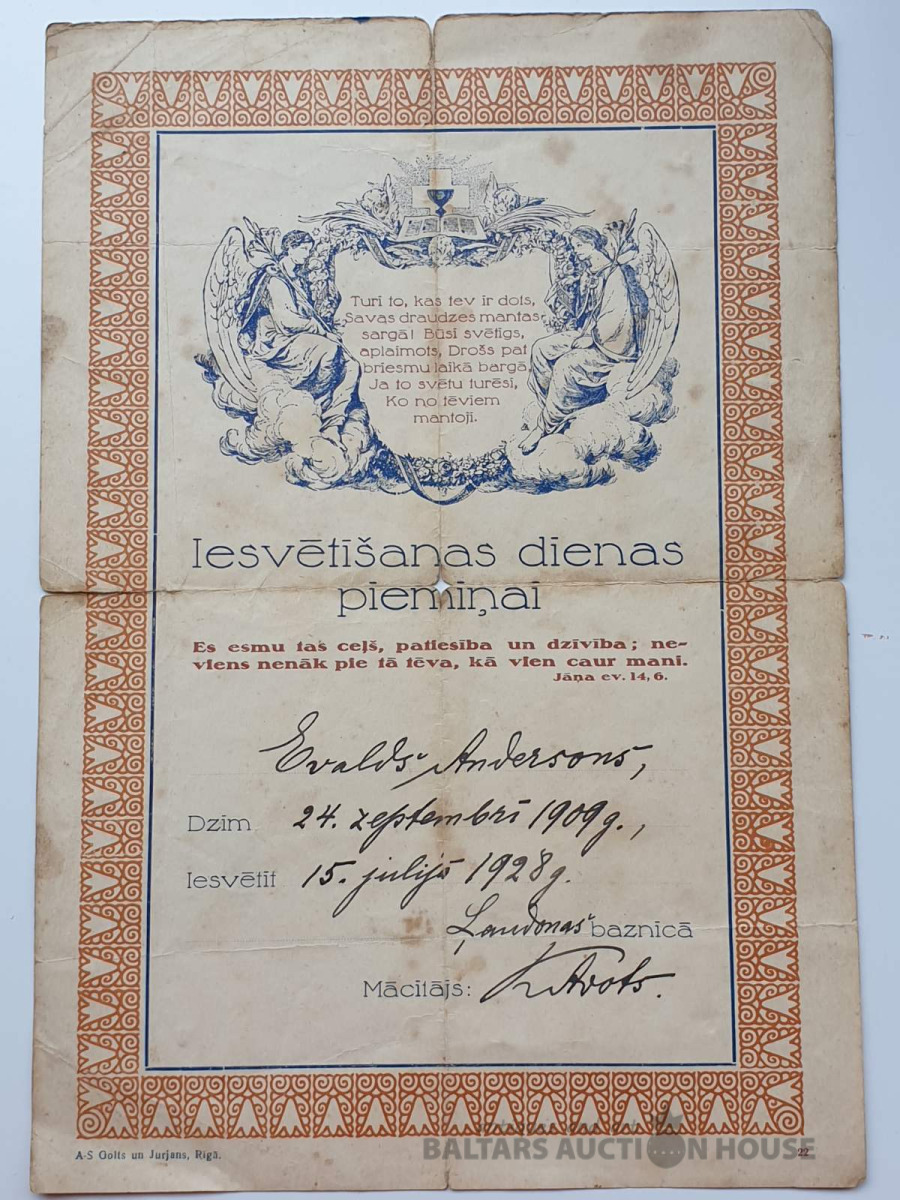 Turi to, kas tev ir dots,
Savas draudzes mantas
sargā! Būsi svētīgs,
aplaimots, Drošs pat
briesmu laikā bargā,
Ja to svētu turēsi,
Ko no tēviem
mantoji.
Iesvētīšanas dienas
piemiņai
Es esmu tas ceļš, patiesība un dzīvība; ne-
viens nenāk pie tā tēva, kā vien caur mani.
Jāņa ev. 14, 6.
Evalds Andersons,
Dzim 24. zeptembrī 1909 g.,
Iesvētīt 15. julijā 1928 g.
Ļaudonas baznīcā
Mācītājs: K Avots.
A-S Golts un Jurjans, Rīgā.
22
BALTARS AUCTION HOUSE